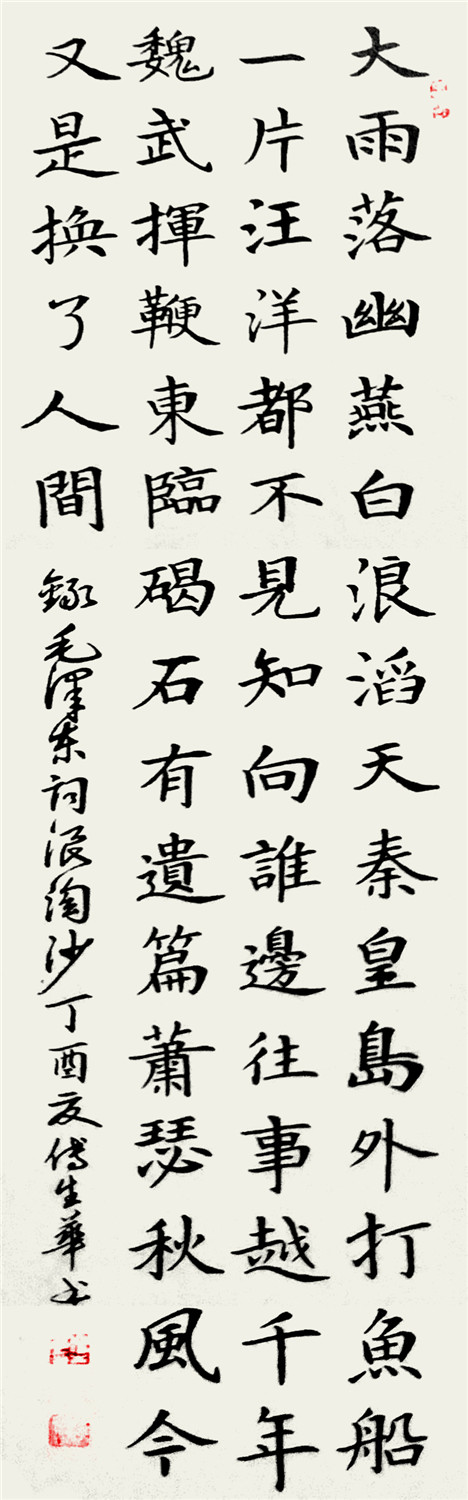 大雨落幽燕白浪滔天秦皇島外打魚船
一片汪洋都不見知向誰邊往事越千年
魏武揮鞭東臨碣石有遺篇蕭瑟秋風今
又是換了人間
錄毛澤東詞浪淘沙丁酉夏傅生華書